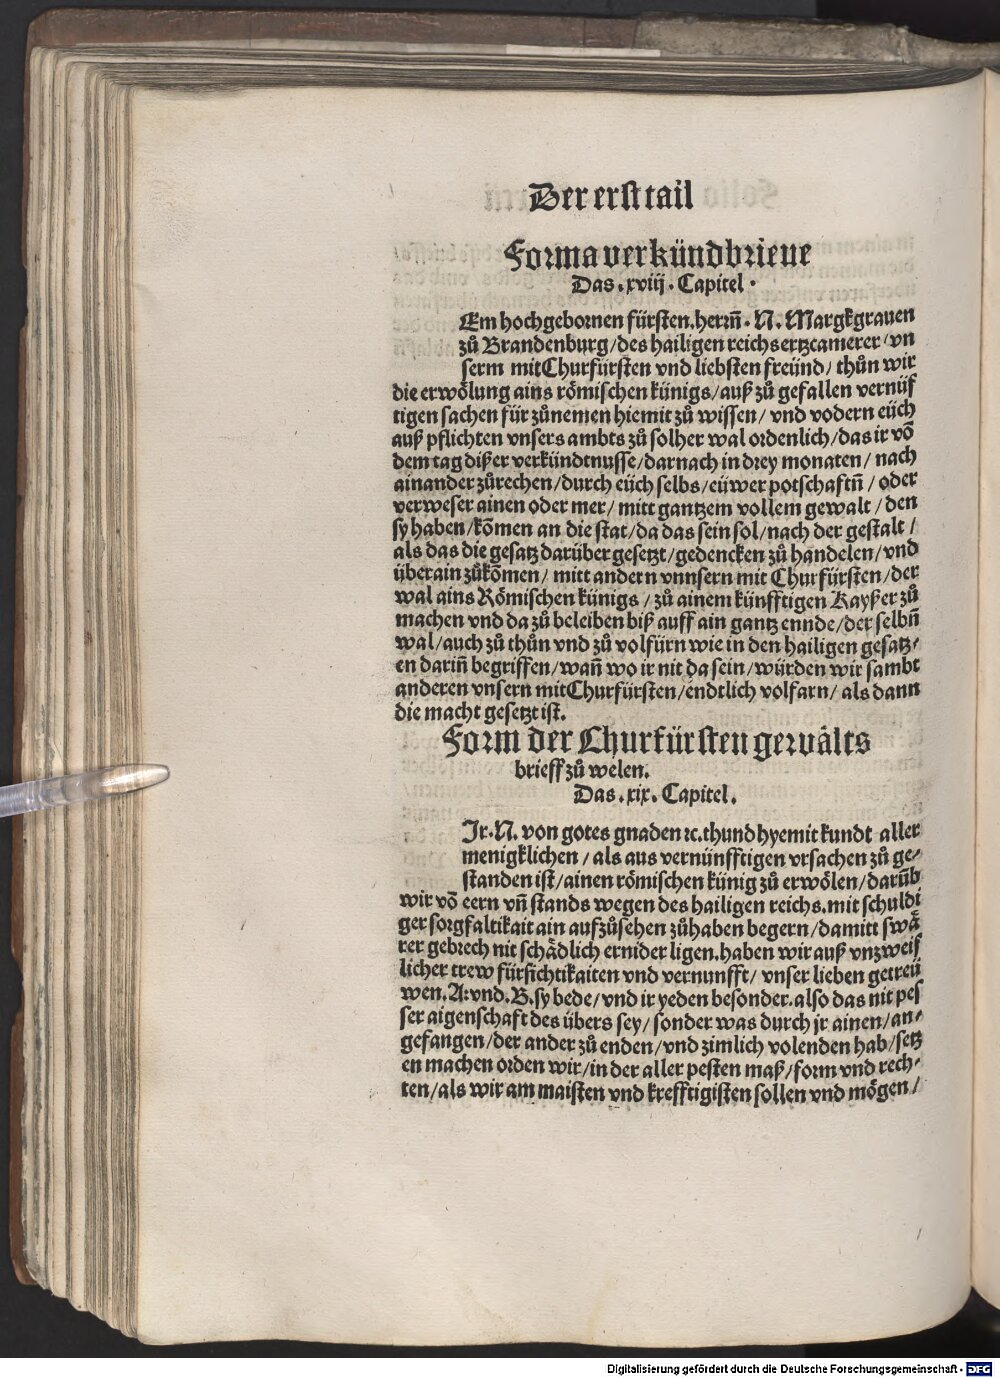 Der erst tail
Forma verkündbrieue
Das .xviij. Capitel.
Em hochgebornen fürsten.herrñ. N. Margkgrauen
zů Brandenburg/des hailigen reichs ertzcamerer/vn
serm mitChurfürsten vnd liebsten freünd/ thůn wir
die erwölung ains römischen künigs/auß zů gefallen vernüf
tigen sachen für zůnemen hiemit zů wissen/ vnd vodern eüch
auß pflichten vnsers ambts zů solher wal ordenlich/das ir võ
dem tag dißer verkündtnusse/darnach in drey monaten/ nach
ainander zůrechen/durch eüch selbs/eüwer potschafftñ/ oder
verweser ainen oder mer/ mitt gantzem vollem gewalt/ den
sy haben/kõmen an die stat/da das sein sol/nach der gestalt/
als das die gesatz darüber gesetzt/gedencken zů handelen/vnd
überain zůkõmen/ mitt andern vnnsern mit Churfürsten/der
wal ains Römischen künigs/zů ainem künfftigen Kayßer zů
machen vnd da zů beleiben biß auff ain gantz ennde/der selbñ
wal/auch zů thůn vnd zů volfürn wie in den hailigen gesatz⸗
en dariñ begriffen/wañ wo ir nit da sein/würden wir sambt
anderen vnsern mitChurfürsten/endtlich volfarn/ als dann
die macht gesetzt ist.
Form der Churfürsten gewâlts
brieff zů welen.
Das .xix. Capitel.
Ir.N. von gotes gnaden ⁊c.thund hyemit kundt aller
menigklichen/ als aus vernünfftigen vrsachen zů ge⸗
standen ist/ainen römischen künig zů erwölen/darüb
wir võ eern vñ stands wegen des hailigen reichs.mit schuldi
ger sorgfaltikait ain aufzůsehen zůhaben begern/damitt swä
rer gebrech nit schädlich ernider ligen.haben wir auß vnzweif
licher trew fürsichtikaiten vnd vernunfft/ vnser lieben getreü
wen.A:vnd.B.sy bede/vnd ir yeden besonder.also das nit pes
ser aigenschaft des übers sey/sonder was durch jr ainen/an⸗
gefangen/der ander zů enden/vnd zimlich volenden hab/setz
en machen orden wir/in der aller pesten maß/form vnd rech⸗
ten/als wir am maisten vnd krefftigisten sollen vnd mögen/
Digitalisierung gefördert durch die Deutsche Forschungsgemeinschaft - DFG